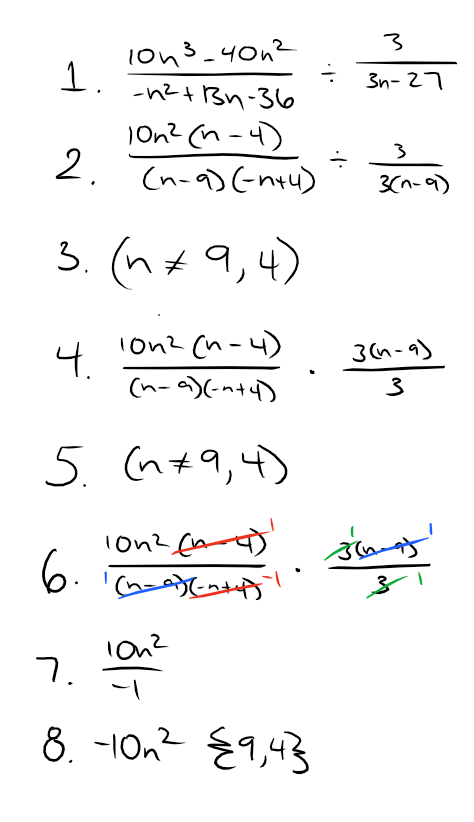 1. (10n³ - 40n²)/(-n² + 13n - 36) ÷ 3/(3n - 27)
2. (10n²(n - 4))/((n - 9)(-n + 4)) ÷ 3/(3(n - 9))
3. (n ≠ 9, 4)
4. (10n²(n - 4))/((n - 9)(-n + 4)) · (3(n - 9))/3
5. (n ≠ 9, 4)
6. (10n²(n - 4) 1)/(1 (n - 9)(-n + 4) -1) · (1 3(n - 9) 1)/(3 1)
7. 10n²/-1
8. -10n² {9, 4}